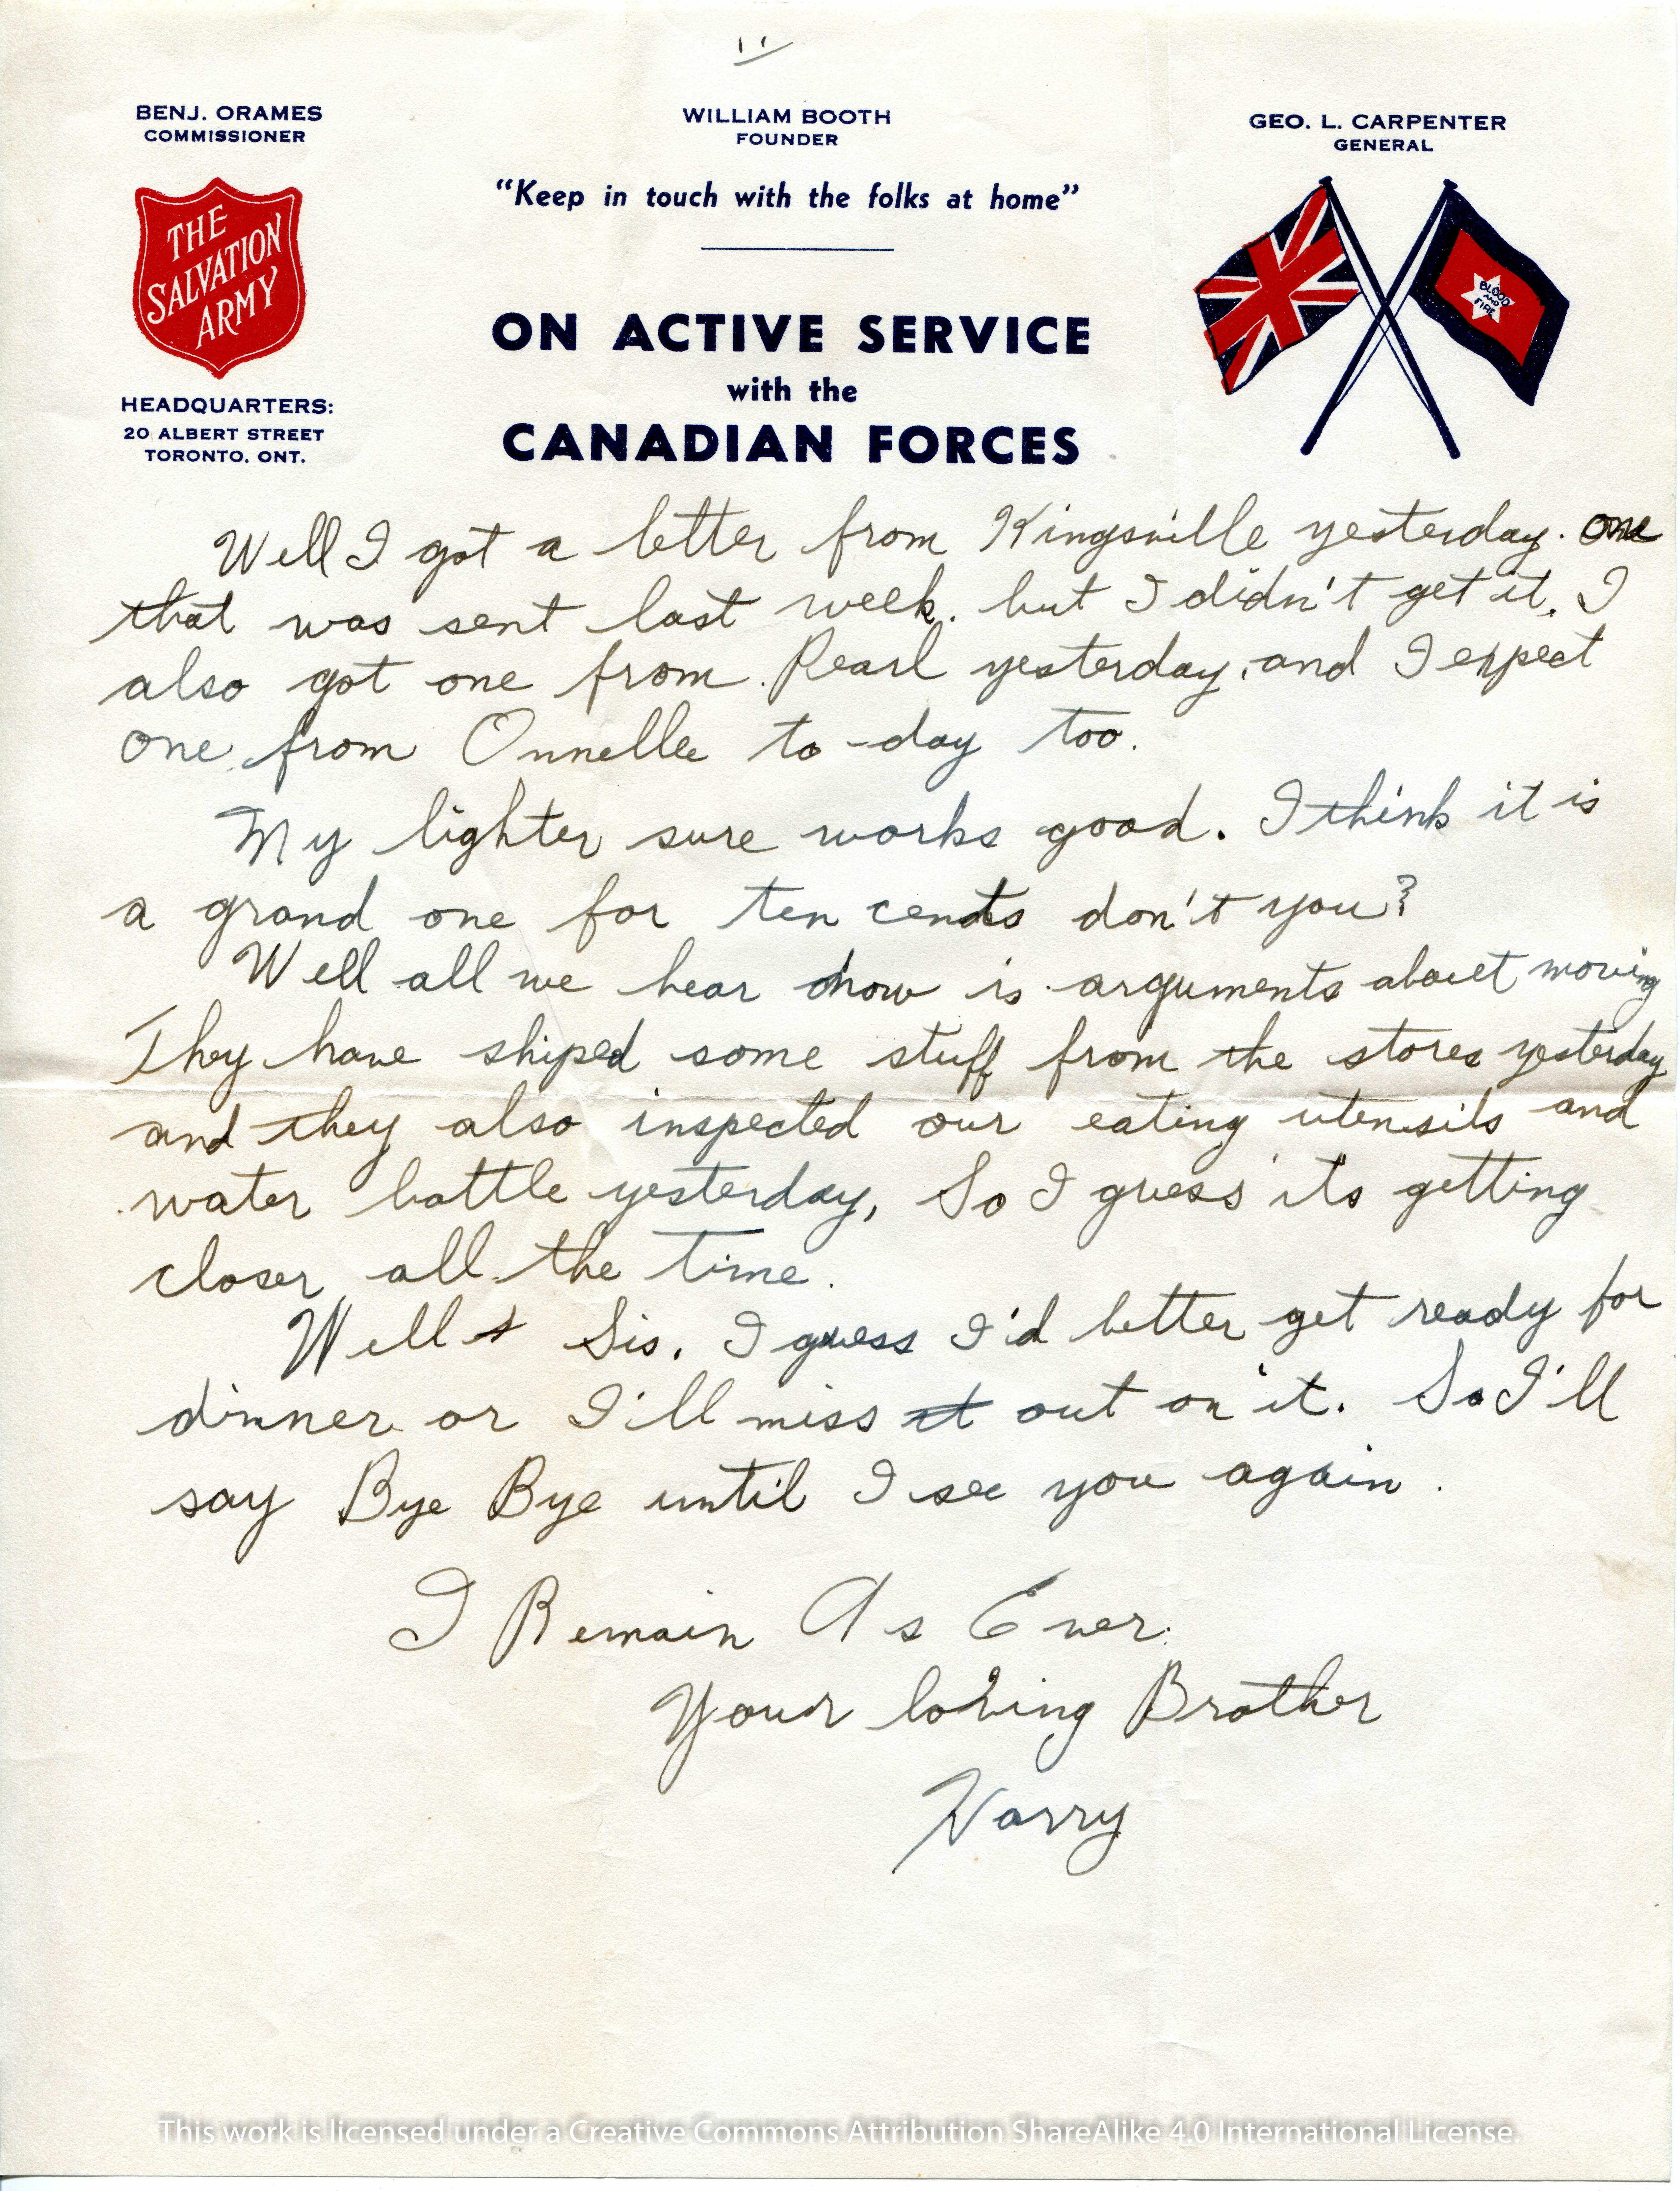 11
BENJ. ORAMES
COMMISSIONER
WILLIAM BOOTH
FOUNDER
GEO. L. CARPENTER
GENERAL
"Keep in touch with the folks at home"
THE
SALVATION
ARMY
BLOOD
AND
FIRE
ON ACTIVE SERVICE
with the
CANADIAN FORCES
HEADQUARTERS:
20 ALBERT STREET
TORONTO. ONT.
Well I got a letter from Kingsville yesterday. one
that was sent last week. but I didn't get it. I
also got one from Pearl yesterday, and I expect
one from Onnelle to-day too.
My lighter sure works good. I think it is
a grand one for ten cents don't you?
Well all we hear now is arguments about moving
They have shiped some stuff from the stores yesterday
and they also inspected our eating utensils and
water bottle yesterday, So I guess its getting
closer all the time.
Well Sis. I guess I'd better get ready for
dinner or I'll miss it out on it. So I'll
say Bye Bye until I see you again.
I Remain As Ever.
Your loving Brother
Harry
This work is licensed under a Creative Commons Attribution ShareAlike 4.0 International License.